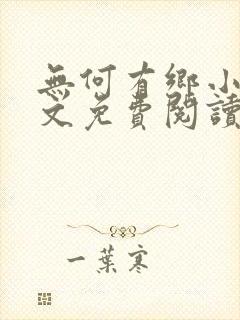 無何有鄉小
文免費閱讀
一葉寒